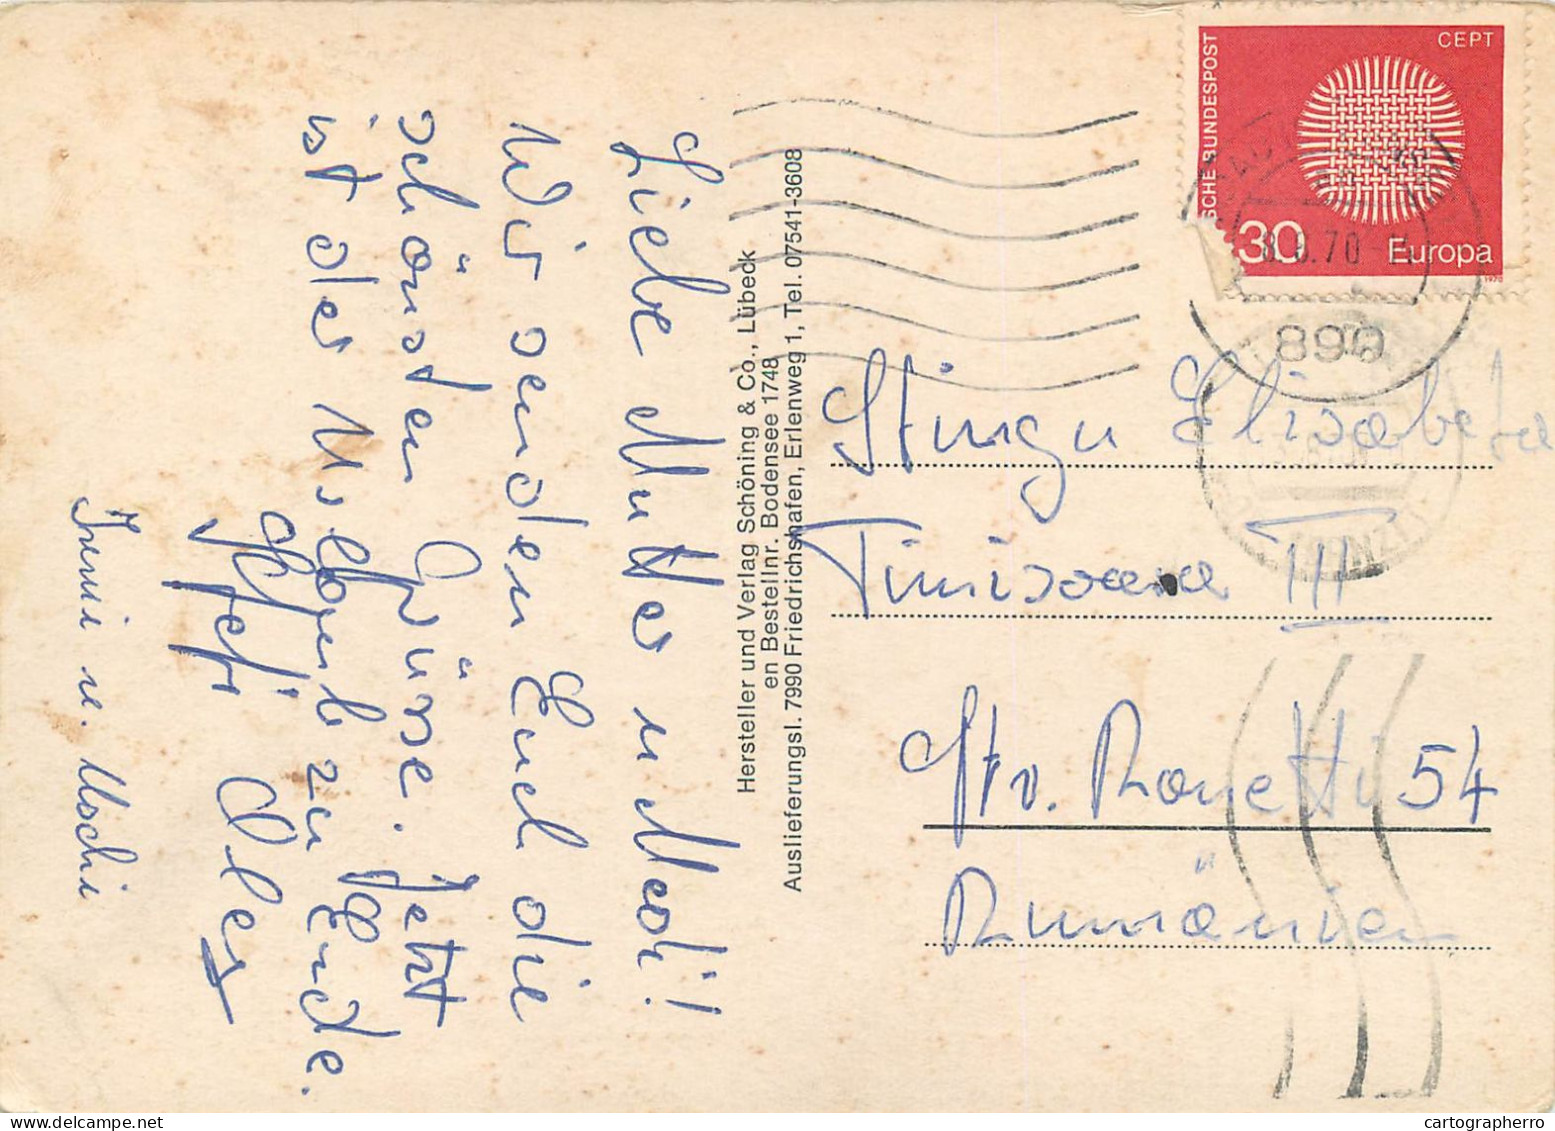 Liebe Mutter u Medi!
Wir senden Euch die
schönsten Grüsse. Jetzt
ist der Urlaub zu Ende.
Hefi
Immi u. Uschi
Hersteller und Verlag Schöning & Co., Lübeck
en Bestellnr. Bodensee 1748
Auslieferungsl. 7990 Friedrichshafen, Erlenweg 1, Tel. 07541-3608
SCHE BUNDESPOST
CEPT
30
Europa
1970
70
890
Stingu Elisabeta
Timisoara III
Str. Rosetti 54
Rumänien
cartographerro